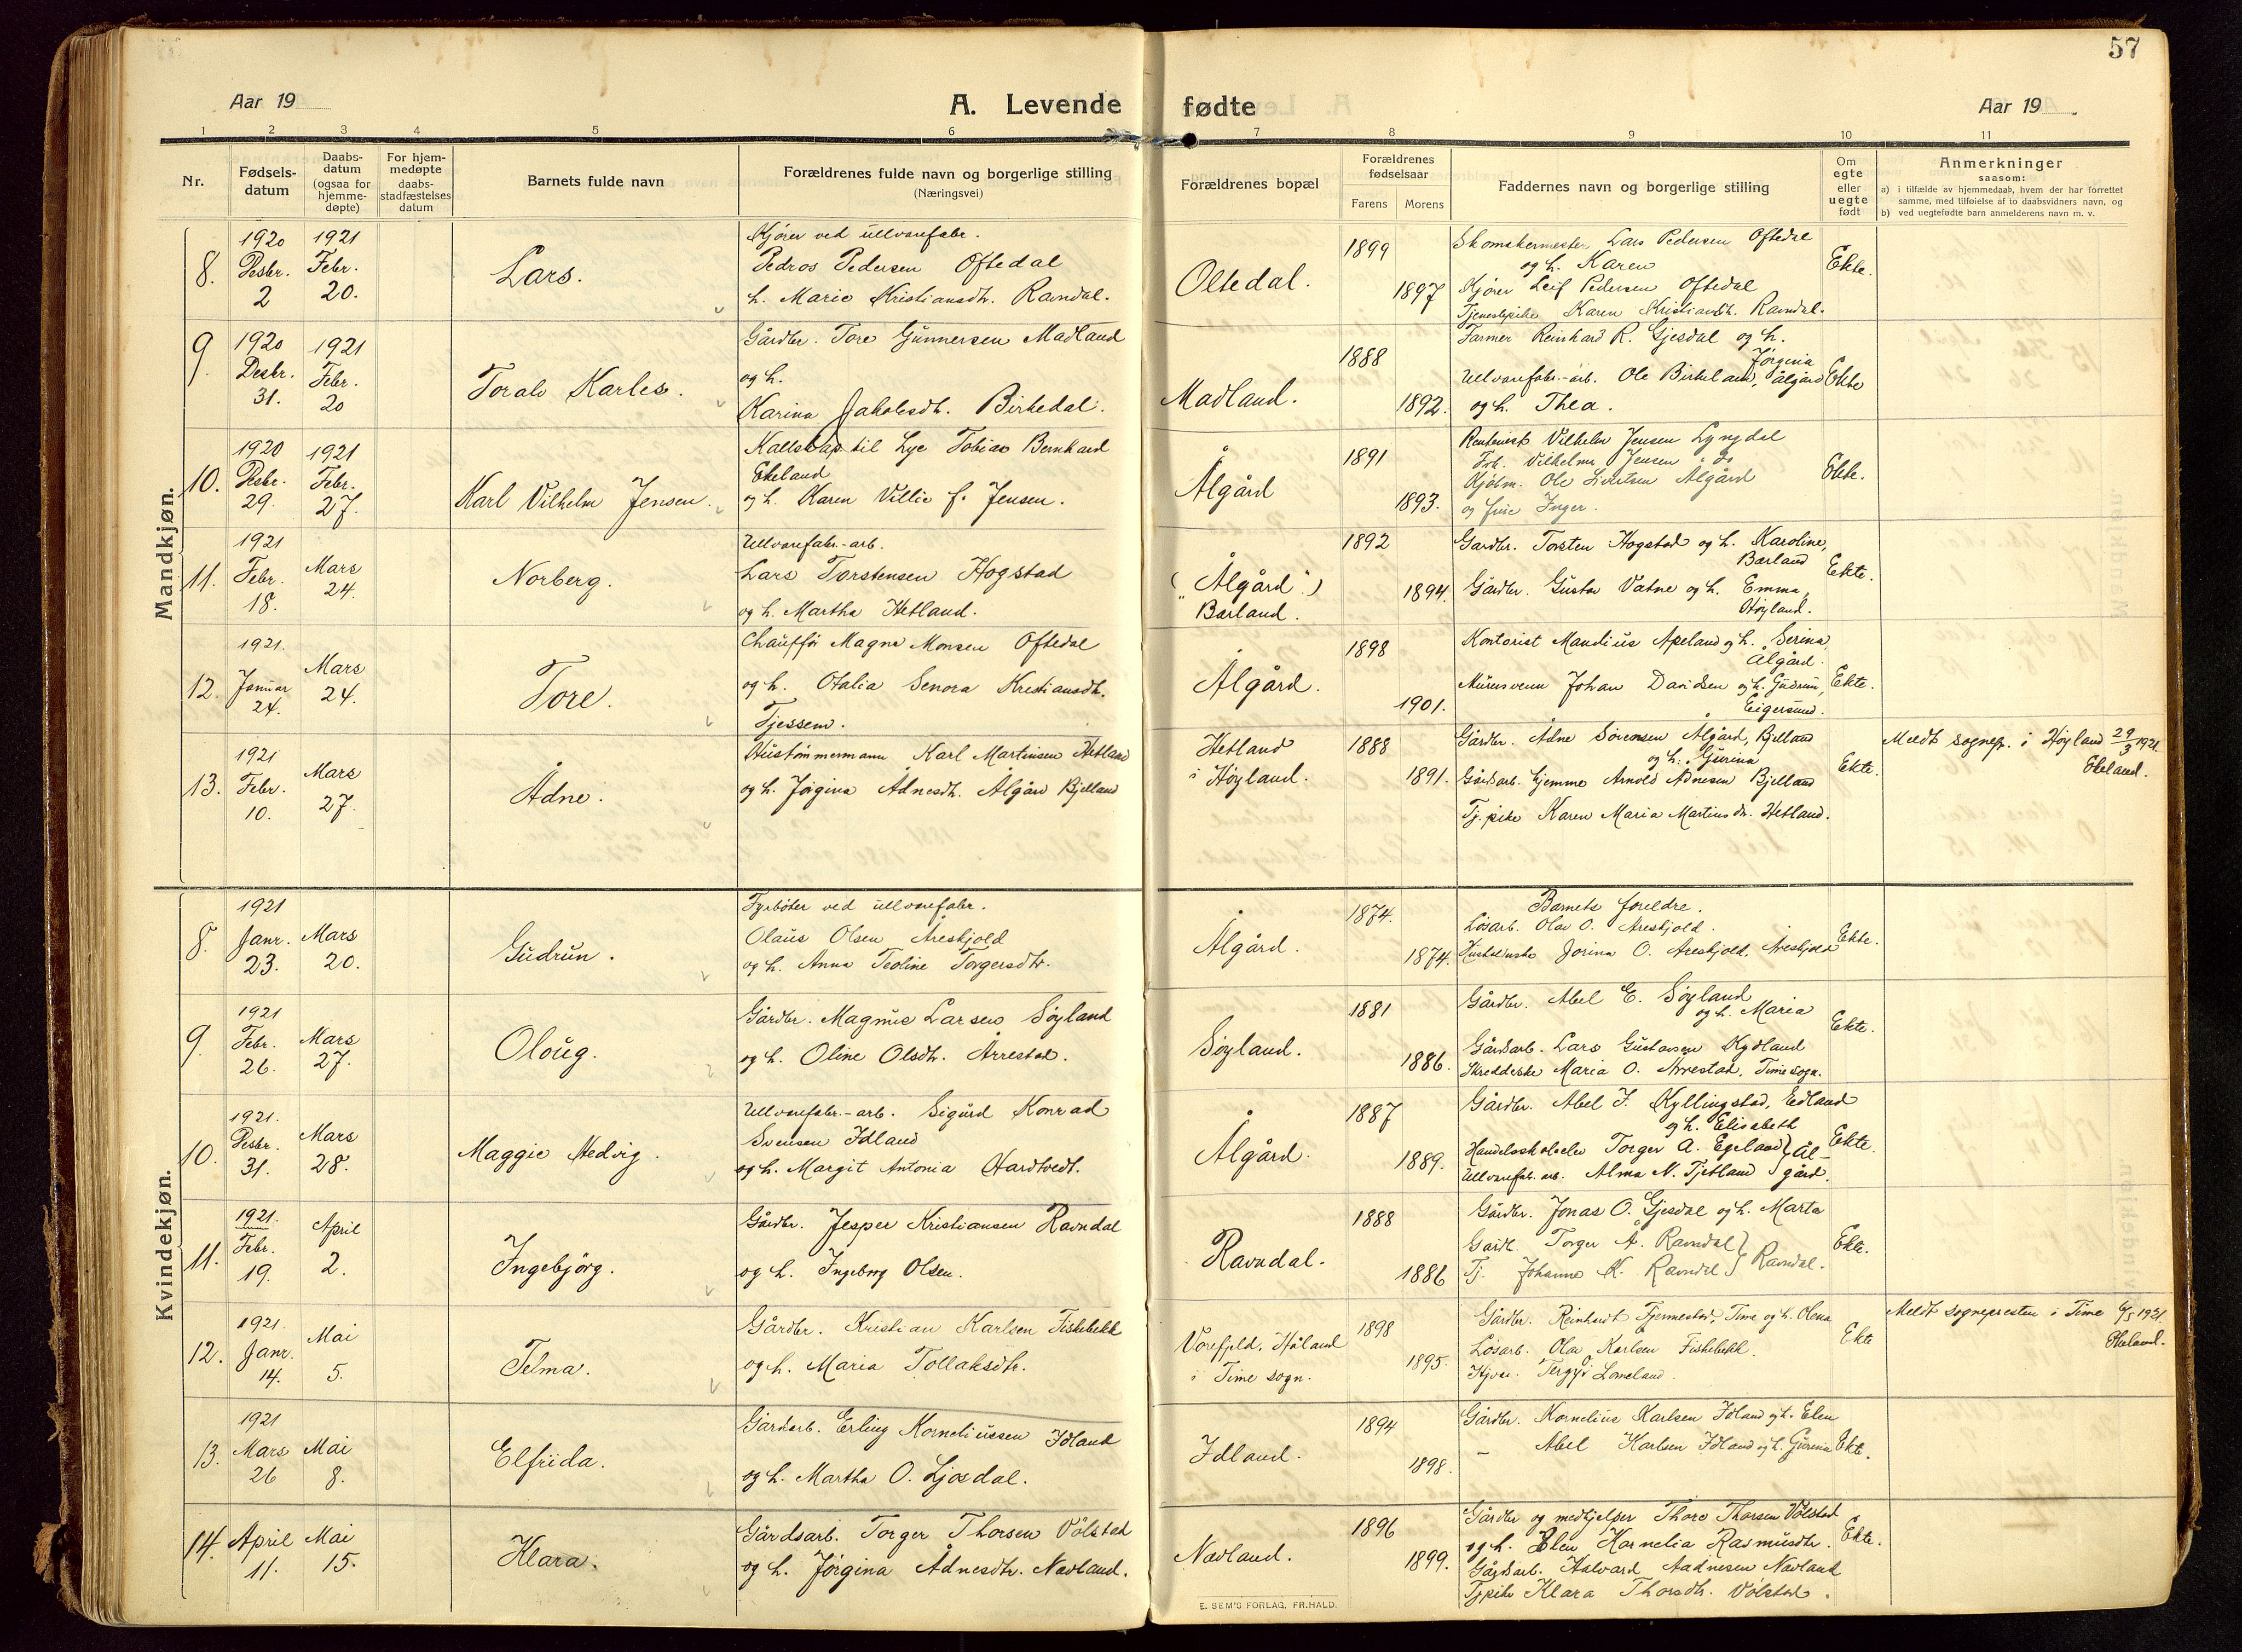 57
Aar 19
A. Levende
fødte
Aar 19
1 2 3 4 5 6 7 8 9 10 11
Nr.
Fødsels-
datum
Daabs-
datum
(ogsaa for
hjemme-
døpte)
For hjem-
medøpte
daabs-
stadfæstelses
datum
Barnets fulde navn
Forældrenes fulde navn og borgerlige stilling
(Næringsvei)
Forældrenes bopæl
Forældrenes
fødselsaar
Farens
Morens
Faddernes navn og borgerlige stilling
Om
egte
eller
uegte
født
Anmerkninger
saasom:
a) i tilfælde av hjemmedaab, hvem der har forrettet
samme, med tilføielse af to daabsvidners navn, og
b) ved uegtefødte barn anmelderens navn m. v.
Mandkjøn.
8.
1920
Desbr.
2
1921
Febr.
20.
Lars.
Kjører ved ullvarefabr.
Pedros Pedersen Oftedal
h. Marie Kristiansdtr. Ravndal.
Oltedal.
1899
1897
Skomakermester Lars Pedersen Oftedal
og h. Karen
Kjører Leif Pedersen Oftedal
Tjenestepike Karen Kristiansdtr. Ravndal.
Ekte.
9.
1920
Desbr.
31.
1921
Febr.
20
Toralv Karles.
Gårdbr. Tore Gunnersen Madland
og h.
Karina Jakobsdtr. Birkedal.
Madland.
1888
1892.
Farmer Reinhard R. Gjesdal og h.
Jørgina
Ullvarefabr.-arb. Ole Birkeland, Ålgård
og h. Thea.
Ekte
10.
1920
Desbr.
29.
1921
Febr.
27.
Karl Vilhelm Jensen.
til Lye Tobias Bernhard
Ekeland
og h. Karen Villie f. Jensen.
Ålgård
1891
1893.
Vilhelm Jensen Lyngdal
Vilhelm Jensen i do
Kjøbm. Ole Ålgård
og frue Inger.
Ekte.
11.
1921
Febr.
18.
Mars
24.
Norberg.
Ullvarefabr.-arb.
Lars Torstensen Hogstad
og h. Martha Hetland.
("Ålgård".)
Bærland.
1892
1894.
Gardbr. Torsten Hogstad og h. Karoline,
Bærland
Gårdbr. Gustav Vatne og h. Emma,
Høyland.
Ekte.
12.
1921.
Januar
24.
Mars
24.
Tore.
Chauffør Magne Monsen Oftedal
og h. Otalia Senora Kristiansdtr.
Tjessem.
Ålgård.
1898
1901.
Kontorist Mandius Apeland og h. Serina,
Ålgård.
Murersvenn Johan Davidsen og h. Gudrun,
Eigersund.
Ekte.
13.
1921
Febr.
10.
Mars
27.
Ådne.
Hustømmermann Karl Martinsen Hetland
og h. Jørgina Ådnesdtr. Ålgård Bjelland
Hetland
i Høyland.
1888
1891.
Gårdbr. Ådne Sørensen Ålgård, Bjelland
og h. Gurina
Gårdsarb. hjemme Arnold Ådnesen Bjelland
Tj.pike Karen Maria Martinsdtr. Hetland.
Ekte.
Meldt sognepr. i Høyland 29/3 1921.
Ekeland.
Kvindekjøn.
8.
1921
Janr.
23.
Mars
20.
Gudrun.
Fyrbøter ved ullvarefabr.
Olaus Olsen Areskjold
og h. Anna Teoline Torgersdtr.
Ålgård.
1874.
1874.
Barnets foreldre.
Løsarb. Olav O. Areskjold.
Jorina O. Areskjold, Areskjold
Ekte.
9.
1921
Febr.
26.
Mars
27.
Oloug.
Gårdbr. Magnus Larsen Søyland
og h. Oline Olsdtr. Arrestad.
Søyland.
1881
1886.
Gårdbr. Abel E. Søyland
og h. Maria
Gårdsarb. Lars Gustavsen Kydland
Skredderske Maria O. Arrestad, Time sogn.
Ekte.
10.
1921.
Desbr.
31.
Mars
28.
Maggie Hedvig.
Ullvarefabr.-arb. Sigurd Konrad
Svensen Idland
og h. Margit Antonia Hardtvedt.
Ålgård.
1887
1889.
Gårdbr. Abel J. Kyllingstad, Edland
og h. Elisabeth
Handelsskoleelev Torger A. Egeland } Ål-
Ullvarefabr.arb. Alma N. Tjetland } gård.
Ekte.
11.
1921.
Febr.
19.
April
2.
Ingebjörg.
Gårdbr. Jesper Kristiansen Ravndal
og h. Ingeborg Olsen.
Ravndal.
1888
1886
Gårdbr. Jonas O. Gjesdal og h. Marta
Gardb. Torger Å. Ravndal }
Tj. Johanne K. Ravndal } Ravndal.
Ekte.
12.
1921.
Janr.
14.
Mai
5.
Telma.
Gårdbr. Kristian Karlsen Fiskebekk
og h. Maria Tollaksdtr.
Vorefjeld, Håland
i Time sogn.
1898
1895.
Gårdbr. Reinhardt Fjermestad, Time og h. Olena
Løsarb. Olav Karlsen Fiskebekk.
Lomeland.
Ekte
Meldt sognepresten i Time 6/5 1921.
Ekeland.
13.
1921
Mars
26
Mai
8.
Elfrida.
Gårdsarb. Erling Korneliussen Idland
og h. Martha O. Ljosdal.
Idland.
1894
1898.
Gårdbr. Kornelius Karlsen Idland og h. Elen
– Abel Karlsen Idland og h. Gurina
Ekte.
14.
April
11.
Mai
15.
Klara.
Gårdsarb. Torger Thorsen Völstad
og h. Jörgina Ådnesdtr. Nædland.
Nædland.
1896
1899.
Gårdbr og medhjelper Thore Thorsen Völstad
og h. Elen Kornelia Rasmusdtr.
Gårdsarb. Halvard Aadnesen Nædland
Tjpike Klara Thorsdtr. Völstad.
Ekte.
E. SEM'S FORLAG, FR.HALD.